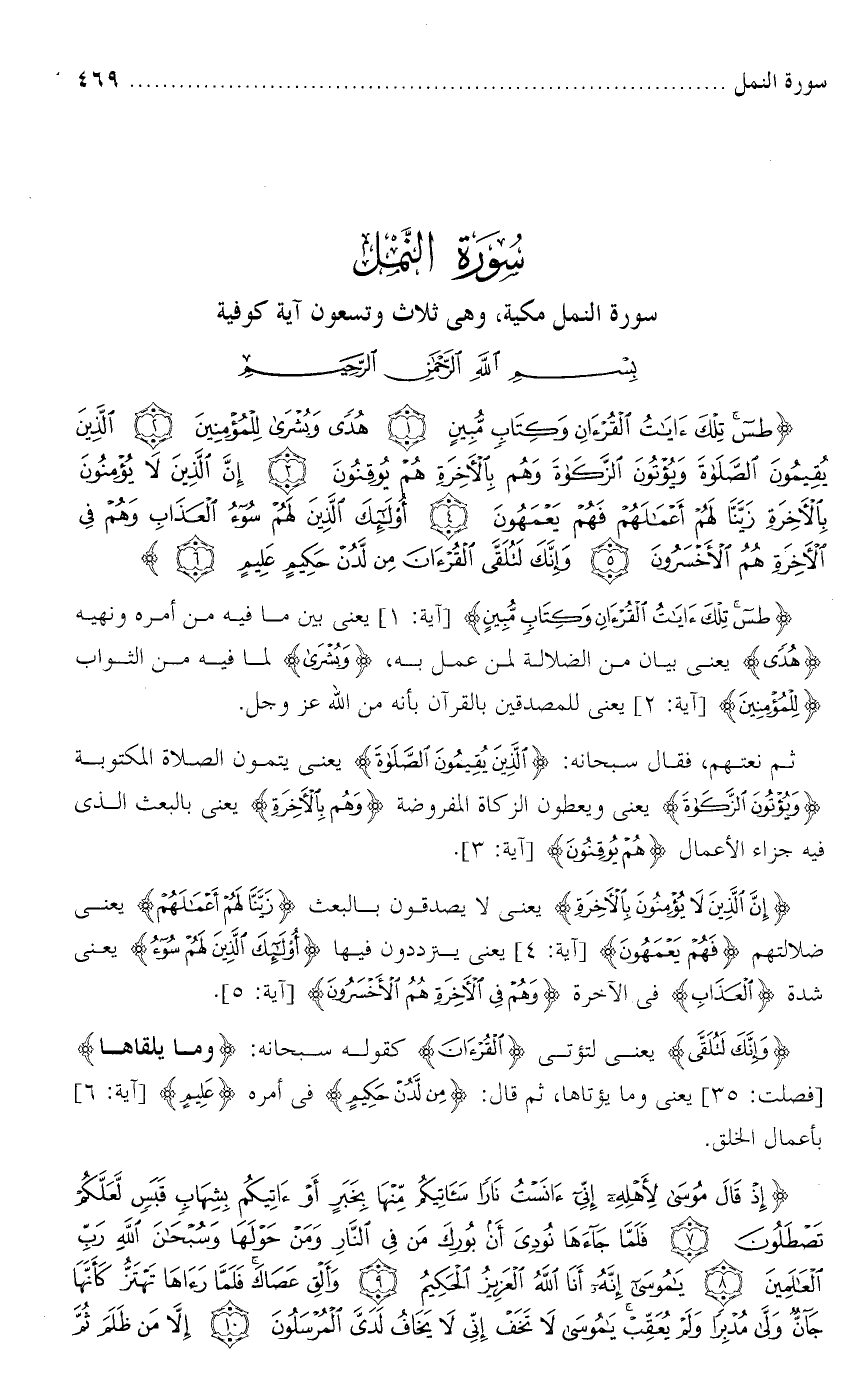 سورة النمل ........................................................................ ٤٦٩
سُورَةُ النَّمْلِ
سورة النمل مكية، وهى ثلاث وتسعون آية كوفية
بِسْمِ ٱللَّهِ ٱلرَّحْمَٰنِ ٱلرَّحِيمِ
﴿طسٓ ۚ تِلْكَ ءَايَٰتُ ٱلْقُرْءَانِ وَكِتَابٍ مُّبِينٍ ١ هُدًى وَبُشْرَىٰ لِلْمُؤْمِنِينَ ٢ ٱلَّذِينَ
يُقِيمُونَ ٱلصَّلَوٰةَ وَيُؤْتُونَ ٱلزَّكَوٰةَ وَهُم بِٱلْأَخِرَةِ هُمْ يُوقِنُونَ ٣ إِنَّ ٱلَّذِينَ لَا يُؤْمِنُونَ
بِٱلْأَخِرَةِ زَيَّنَّا لَهُمْ أَعْمَٰلَهُمْ فَهُمْ يَعْمَهُونَ ٤ أُوْلَٰٓئِكَ ٱلَّذِينَ لَهُمْ سُوٓءُ ٱلْعَذَابِ وَهُمْ فِى
ٱلْأَخِرَةِ هُمُ ٱلْأَخْسَرُونَ ٥ وَإِنَّكَ لَتُلَقَّى ٱلْقُرْءَانَ مِن لَّدُنْ حَكِيمٍ عَلِيمٍ ٦ ﴾
﴿طسٓ ۚ تِلْكَ ءَايَٰتُ ٱلْقُرْءَانِ وَكِتَابٍ مُّبِينٍ﴾ [آية: ١] يعنى بين ما فيه من أمره ونهيه
﴿هُدًى﴾ يعنى بيان من الضلالة لمن عمل به، ﴿وَبُشْرَىٰ﴾ لما فيه من الثواب
﴿لِلْمُؤْمِنِينَ﴾ [آية: ٢] يعنى للمصدقين بالقرآن بأنه من الله عز وجل.
ثم نعتهم، فقال سبحانه: ﴿ٱلَّذِينَ يُقِيمُونَ ٱلصَّلَوٰةَ﴾ يعنى يتمون الصلاة المكتوبة
﴿وَيُؤْتُونَ ٱلزَّكَوٰةَ﴾ يعنى ويعطون الزكاة المفروضة ﴿وَهُم بِٱلْأَخِرَةِ﴾ يعنى بالبعث الذى
فيه جزاء الأعمال ﴿هُمْ يُوقِنُونَ﴾ [آية: ٣].
﴿إِنَّ ٱلَّذِينَ لَا يُؤْمِنُونَ بِٱلْأَخِرَةِ﴾ يعنى لا يصدقون بالبعث ﴿زَيَّنَّا لَهُمْ أَعْمَٰلَهُمْ﴾ يعنى
ضلالتهم ﴿فَهُمْ يَعْمَهُونَ﴾ [آية: ٤] يعنى يترددون فيها ﴿أُوْلَٰٓئِكَ ٱلَّذِينَ لَهُمْ سُوٓءُ﴾ يعنى
شدة ﴿ٱلْعَذَابِ﴾ فى الآخرة ﴿وَهُمْ فِى ٱلْأَخِرَةِ هُمُ ٱلْأَخْسَرُونَ﴾ [آية: ٥].
﴿وَإِنَّكَ لَتُلَقَّى﴾ يعنى لتؤتى ﴿ٱلْقُرْءَانَ﴾ كقوله سبحانه: ﴿وما يلقاها﴾
[فصلت: ٣٥] يعنى وما يؤتاها، ثم قال: ﴿مِن لَّدُنْ حَكِيمٍ﴾ فى أمره ﴿عَلِيمٍ﴾ [آية: ٦]
بأعمال الخلق.
﴿إِذْ قَالَ مُوسَىٰ لِأَهْلِهِۦٓ إِنِّىٓ ءَانَسْتُ نَارًا سَـَٔاتِيكُم مِّنْهَا بِخَبَرٍ أَوْ ءَاتِيكُم بِشِهَابٍ قَبَسٍ لَّعَلَّكُمْ
تَصْطَلُونَ ٧ فَلَمَّا جَآءَهَا نُودِىَ أَنۢ بُورِكَ مَن فِى ٱلنَّارِ وَمَنْ حَوْلَهَا وَسُبْحَٰنَ ٱللَّهِ رَبِّ
ٱلْعَٰلَمِينَ ٨ يَٰمُوسَىٰٓ إِنَّهُۥٓ أَنَا ٱللَّهُ ٱلْعَزِيزُ ٱلْحَكِيمُ ٩ وَأَلْقِ عَصَاكَ ۚ فَلَمَّا رَءَاهَا تَهْتَزُّ كَأَنَّهَا
جَآنٌّ وَلَّىٰ مُدْبِرًا وَلَمْ يُعَقِّبْ ۚ يَٰمُوسَىٰ لَا تَخَفْ إِنِّى لَا يَخَافُ لَدَىَّ ٱلْمُرْسَلُونَ ١٠ إِلَّا مَن ظَلَمَ ثُمَّ